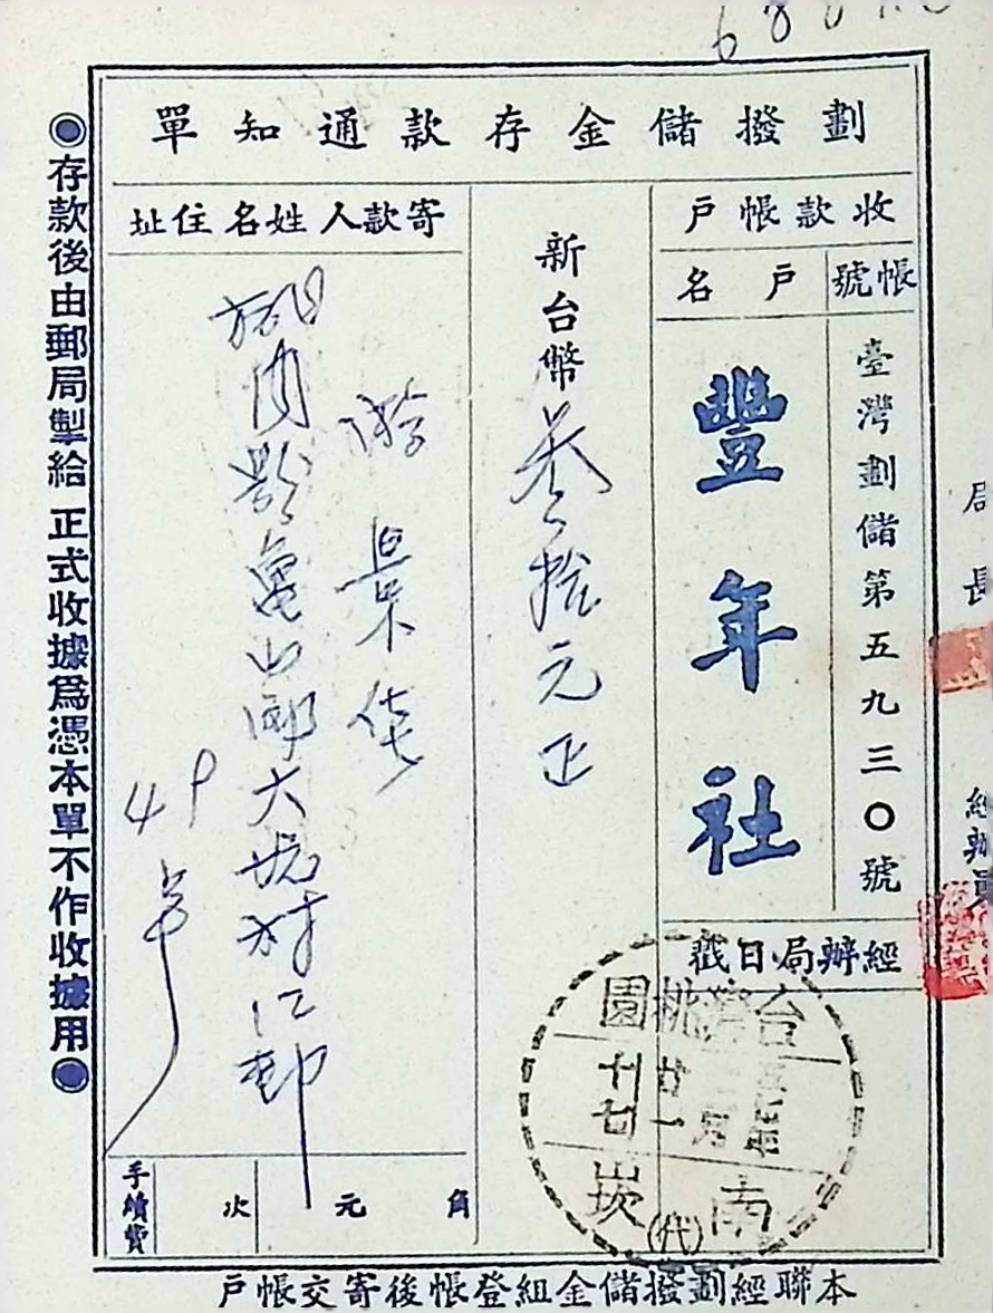 劃撥儲金存款通知單
收款帳戶
帳號
戶名
臺灣劃儲第五九三〇號
豐年社
經辦局日戳
台灣桃園
南崁
(代)
新台幣叁拾元正
寄款人姓名住址
游景佳
龜山鄉大坑村
49
手續費
次
元
角
本聯經劃撥儲金組登帳後寄交帳戶
◉存款後由郵局掣給正式收據為憑本單不作收據用◉
局長
經辦員